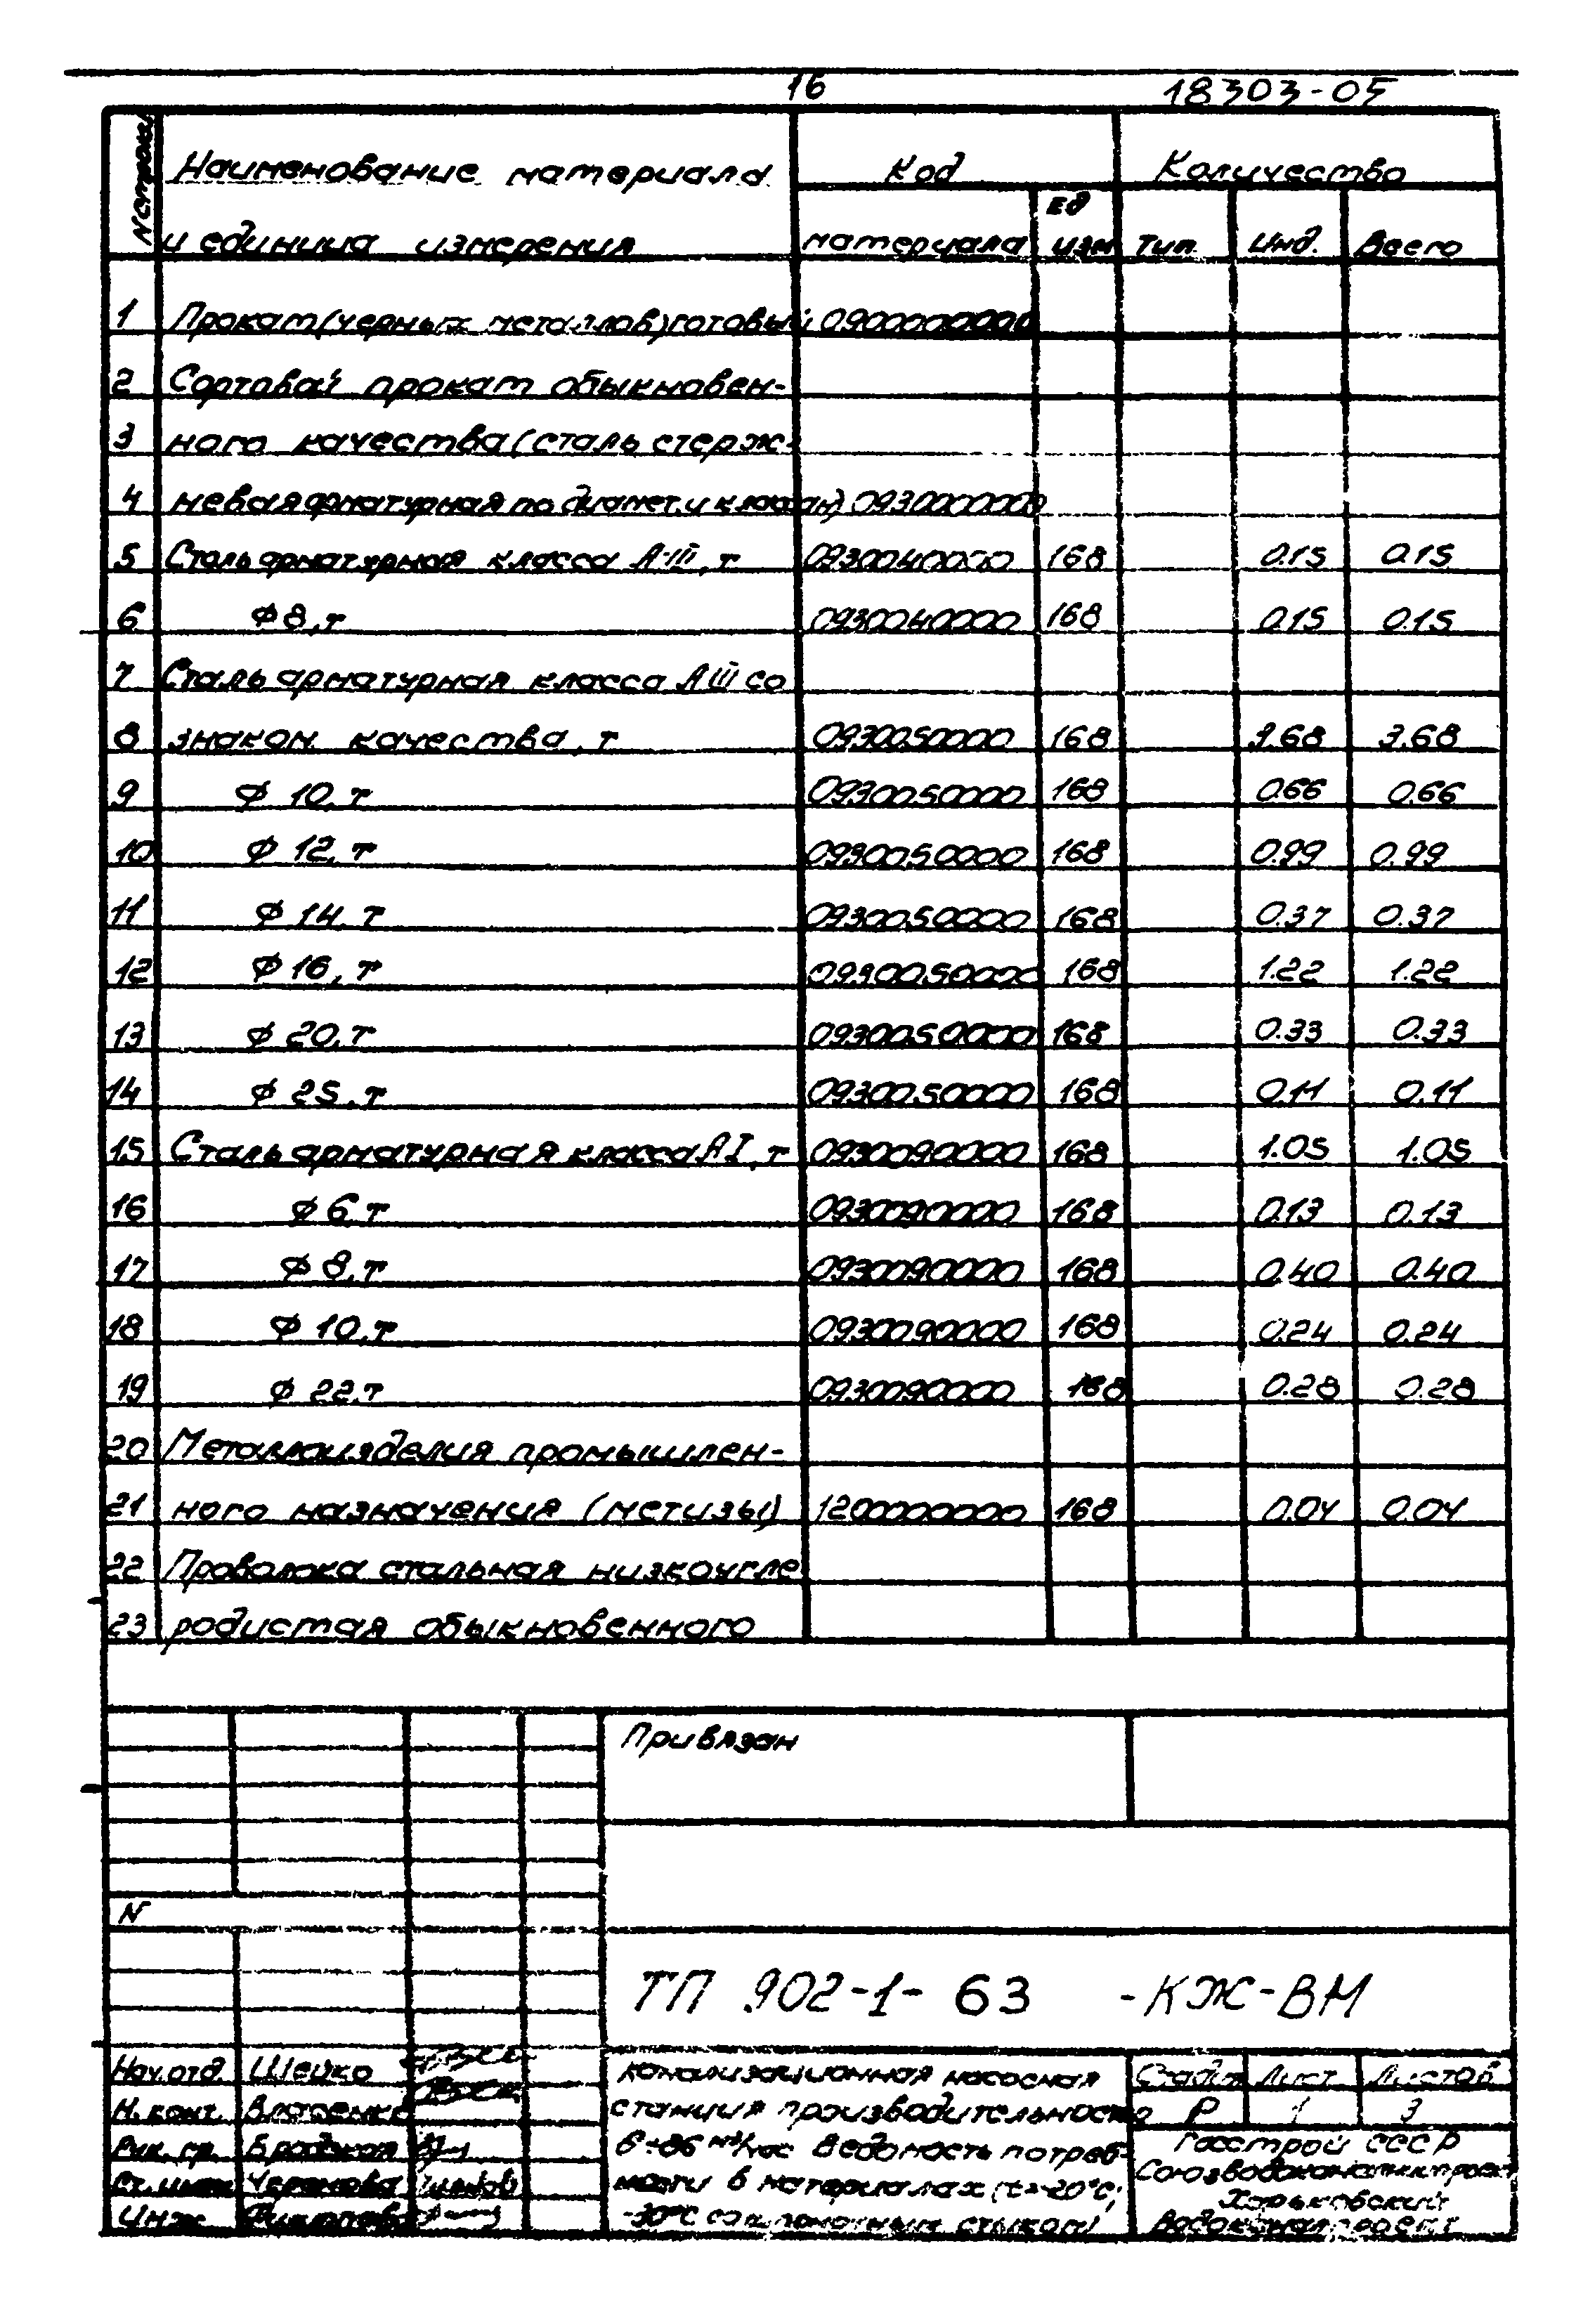 16 18303-05
N строки Наименование материала Код Количество
и единица измерения материала Ед изм Тип. Инд. Всего
1 Прокат (черных металлов) готовый 0900000000
2 Сортовой прокат обыкновен-
3 ного качества (сталь стерж-
4 невая арматурная по диамет. и классам) 0930000000
5 Сталь арматурная класса А-III, т 0930040000 168 0.15 0.15
6 Ф 8, т 0930040000 168 0.15 0.15
7 Сталь арматурная класса АIII со
8 знаком качества, т 0930050000 168 3.68 3.68
9 Ф 10, т 0930050000 168 0.66 0.66
10 Ф 12, т 0930050000 168 0.99 0.99
11 Ф 14, т 0930050000 168 0.37 0.37
12 Ф 16, т 0930050000 168 1.22 1.22
13 Ф 20, т 0930050000 168 0.33 0.33
14 Ф 25, т 0930050000 168 0.11 0.11
15 Сталь арматурная класса АI, т 0930090000 168 1.05 1.05
16 Ф 6, т 0930090000 168 0.13 0.13
17 Ф 8, т 0930090000 168 0.40 0.40
18 Ф 10, т 0930090000 168 0.24 0.24
19 Ф 22, т 0930090000 168 0.28 0.28
20 Металлоизделия промышлен-
21 ного назначения (метизы) 1200000000 168 0.04 0.04
22 Проволока стальная низкоугле
23 родистая обыкновенного
Привязан
N
ТП 902-1-63 -КЖ-ВМ
Нач. отд. Шейко
Н. конт. Власенко
Рук. гр. Бродская
Ст. инж
Инж
Канализационная насосная
станция производительностью
6÷86 м³/час Ведомость потреб-
ности в материалах (t=-20°С;
-30°С со стыком)
Стадия Лист Листов
Р 1 3
Госстрой СССР
Союзводоканалпроект
Харьковский
Водоканалпроект